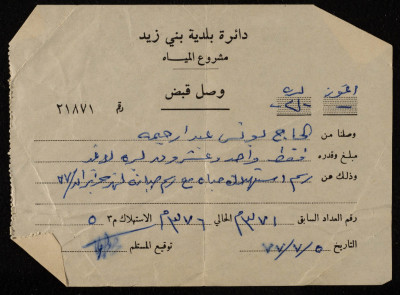 دائرة بلدية بني زيد
مشروع المياه
وصل قبض
رقم ٢١٨٧١
وصلنا من الحاج يونس عبد الرحيم
مبلغ وقدره فقط واحد وعشرون ليرة لا غير
وذلك عن رسم استهلاك مياه مع رسم صيانة
رقم العداد السابق ٣٧١م٣ الحالي ٣٧٦م٣ الاستهلاك م٣ ٥
التاريخ ٧٧/٧/٥ توقيع المستلم